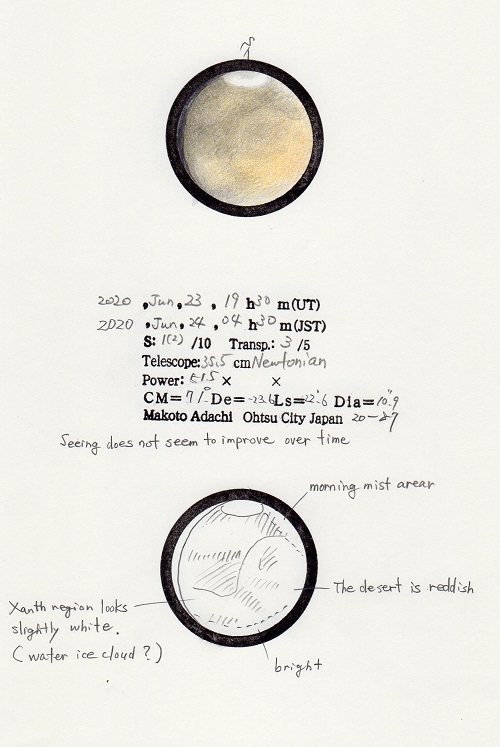 S
2020 , Jun, 23 , 19 h 30 m (UT)
2020 , Jun, 24 , 04 h 30 m (JST)
S: 1(2) /10 Transp.: 3 /5
Telescope: 35.5 cm Newtonian
Power: × ×
CM= 71° De= -23.6 Ls= Dia= 10".9
Makoto Adachi Ohtsu City Japan
Seeing does not seem to improve over time
morning mist arear
The desert is reddish
Xanth region looks
slightly white.
(water ice cloud?)
bright